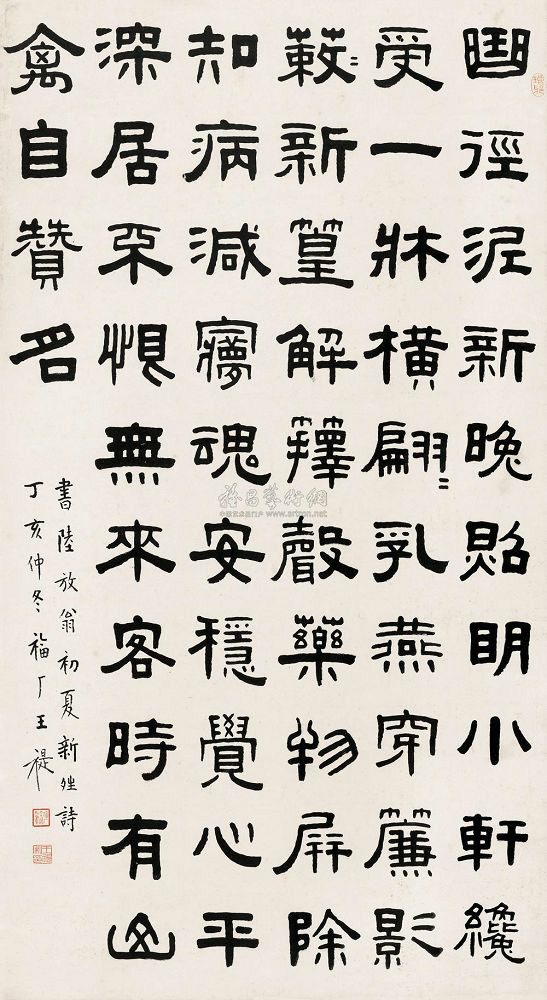 幽徑泥新晚照明小軒纔
受一牀橫翩〻乳燕穿簾影
蔌〻新篁解籜聲藥物屏除
知病減夢魂安穩覺心平
深居不恨無來客時有山
禽自贊名
書陸放翁初夏新夝詩
丁亥仲冬福厂王禔
雅昌藝術網
中国艺术品门户 www.artron.net